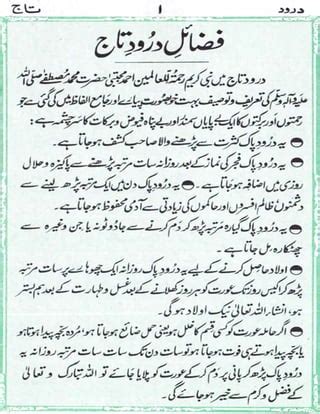 درود ۱ تاج
فضائلِ درودِ تاج
درود تاج میں نبی کریم رحمۃ للعالمین احمد مجتبیٰ حضرت محمد مصطفےٰ صلی اللہ
علیہ وآلہ وسلم کی تعریف و توصیف بہت خوبصورت پیرائے اور جامع الفاظ میں کی گئی ہے جو
رحمتوں اور برکتوں کا ایک بے پایاں سمندر اور بے پناہ فیوض و برکات کا سرچشمہ ہے:
● یہ درود پاک کثرت سے پڑھنے والا صاحب کشف ہو جاتا ہے۔
● یہ درود پاک فجر کی نماز کے بعد روزانہ سات مرتبہ پڑھنے سے پاکیزہ و حلال
روزی میں اضافہ ہو جاتا ہے۔ ● یہ درود پاک دن میں ایک مرتبہ پڑھ لینے سے
دشمنوں ظالم افسروں اور حاکموں کی زیادتی سے آدمی محفوظ ہو جاتا ہے۔
● یہ درود پاک گیارہ مرتبہ پڑھ کر دم کرنے سے جادو ٹونہ یا جن وغیرہ سے
چھٹکارہ مل جاتا ہے۔
● اولاد حاصل کرنے کے لیے یہ درود پاک روزانہ ایک چھوہارے پر سات مرتبہ
پڑھ کر اکیس روز تک عورت کو ہر روز کھلانے کے بعد غسل و طہارت کے بعد ہم بستر
ہو، انشاء اللہ تعالیٰ نیک اولاد ہو گی۔
● اگر حاملہ عورت کو کسی قسم کا خلل ہو یعنی حمل ضائع ہو جاتا ہو، مردہ بچہ پیدا ہوتا ہو
یا بچہ پیدا ہوتے ہی فوت ہو جاتا ہو تو سات دن تک سات سات مرتبہ روزانہ یہ
درود پاک پڑھ کر پانی پر دم کر کے عورت کو پلایا جائے تو اللہ تبارک و تعالیٰ
کے فضل و کرم سے خیر ہو جائے گی۔